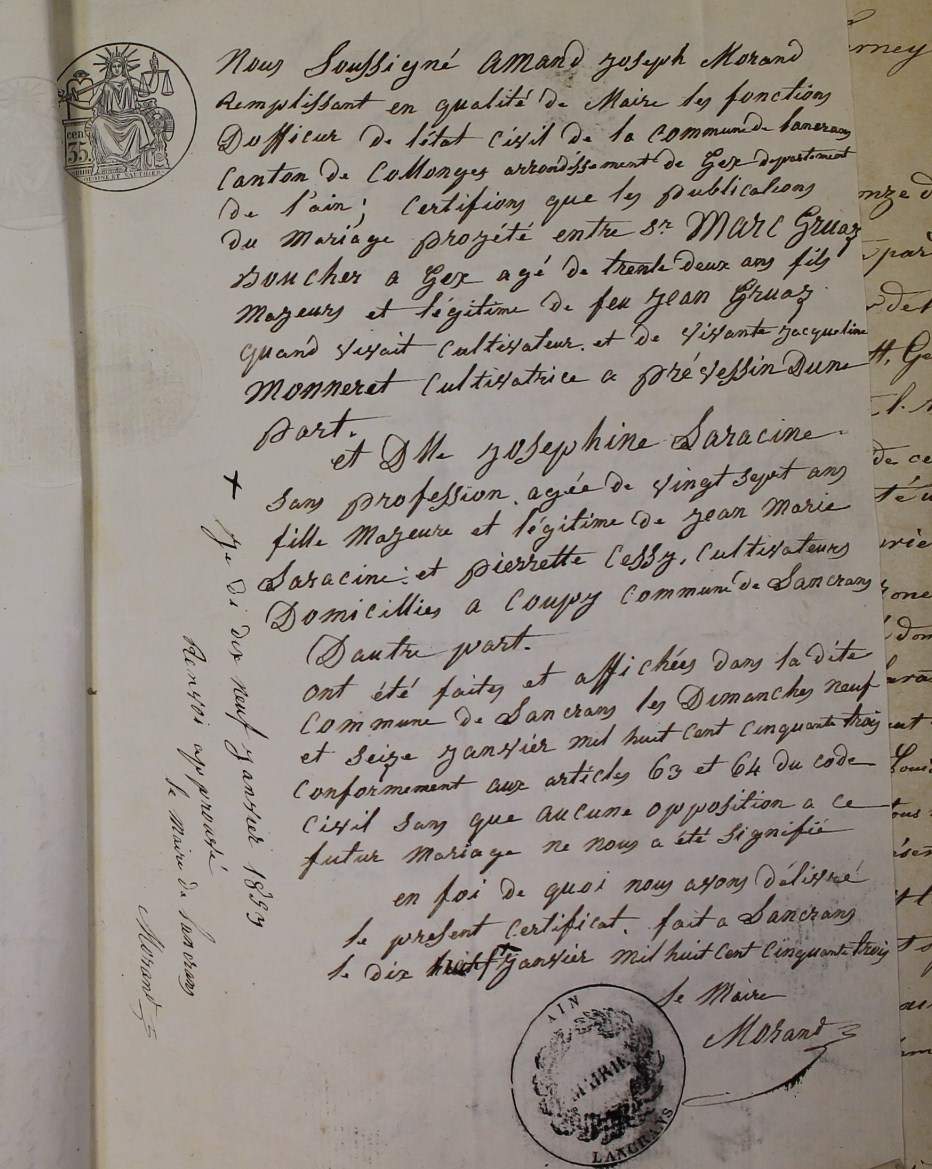 Nous Soussigné Amand Joseph Morand
Remplissant en qualité de Maire les fonctions
D'officier de l'état civil de la Commune de Lancrans
Canton de Collonges arrondissement de Gex departement
de l'ain; Certifions que les publications
du Mariage projété entre Sr Marc Gruaz
Boucher a Gex agé de trente deux ans fils
Majeurs et légitime de feu Jean Gruaz
quand vivait Cultivateur et de vivante Jacqueline
Monneret Cultivatrice a prévessin Dune
part.
et Dlle Josephine Saracine
Sans profession agée de vingt sept ans
fille Majeure et légitime de Jean Marie
Saracine et pierrette Cessy, Cultivateurs
Domicillies a Coupy Commune de Lancrans
Dautre part.
ont été faites et affichées dans la dite
Commune de Lancrans les Dimanches neuf
et seize Janvier mil huit Cent Cinquante trois
Conformement aux articles 63 et 64 du Code
Civil sans que aucune opposition a ce
futur Mariage ne nous a été signifié
en foi de quoi nous avons délivré
le present Certificat. fait a Lancrans
le dix + Janvier mil huit Cent Cinquante trois
le Maire
Morand
+ Je di dix neuf Janvier 1853
Renvoi approuvé
le Maire de Lancrans
Morand
cent
35
AIN
MAIRIE
LANCRANS